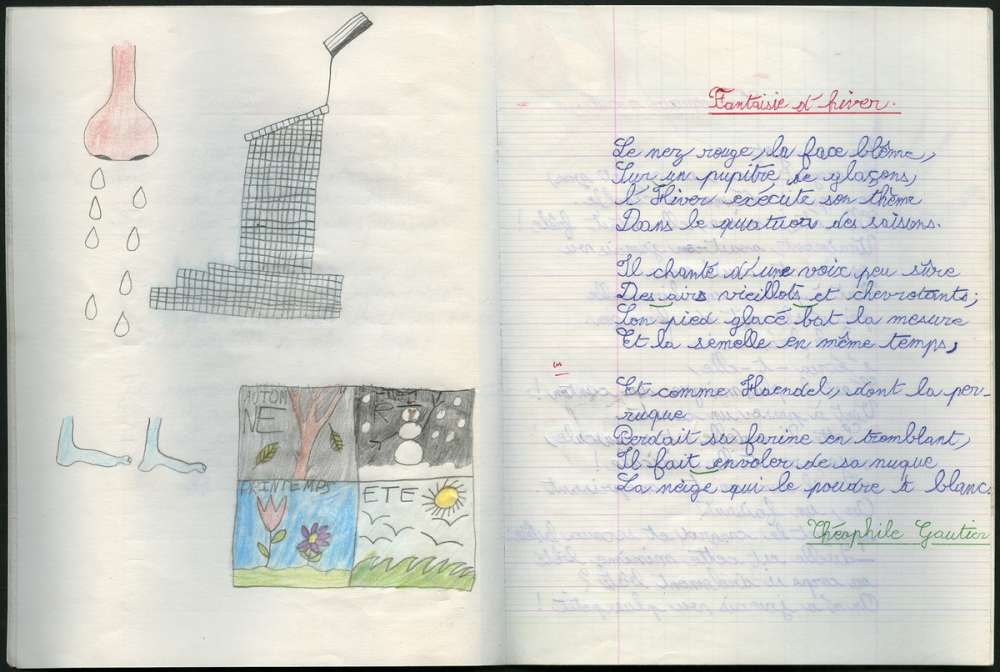 AUTOM
NE
PRINTEMPS
ETE
Fantaisie d'hiver.
Le nez rouge, la face blême,
Sur un pupitre de glaçons,
l'Hiver exécute son thème
Dans le quatuor des saisons.
Il chante d'une voix peu sûre
Des airs vieillots et chevrotants;
Son pied glacé bat la mesure
Et la semelle en même temps;
Et comme Haendel, dont la per-
ruque
Perdait sa farine en tremblant,
Il fait envoler de sa nuque
La neige qui le poudre à blanc.
Théophile Gautier